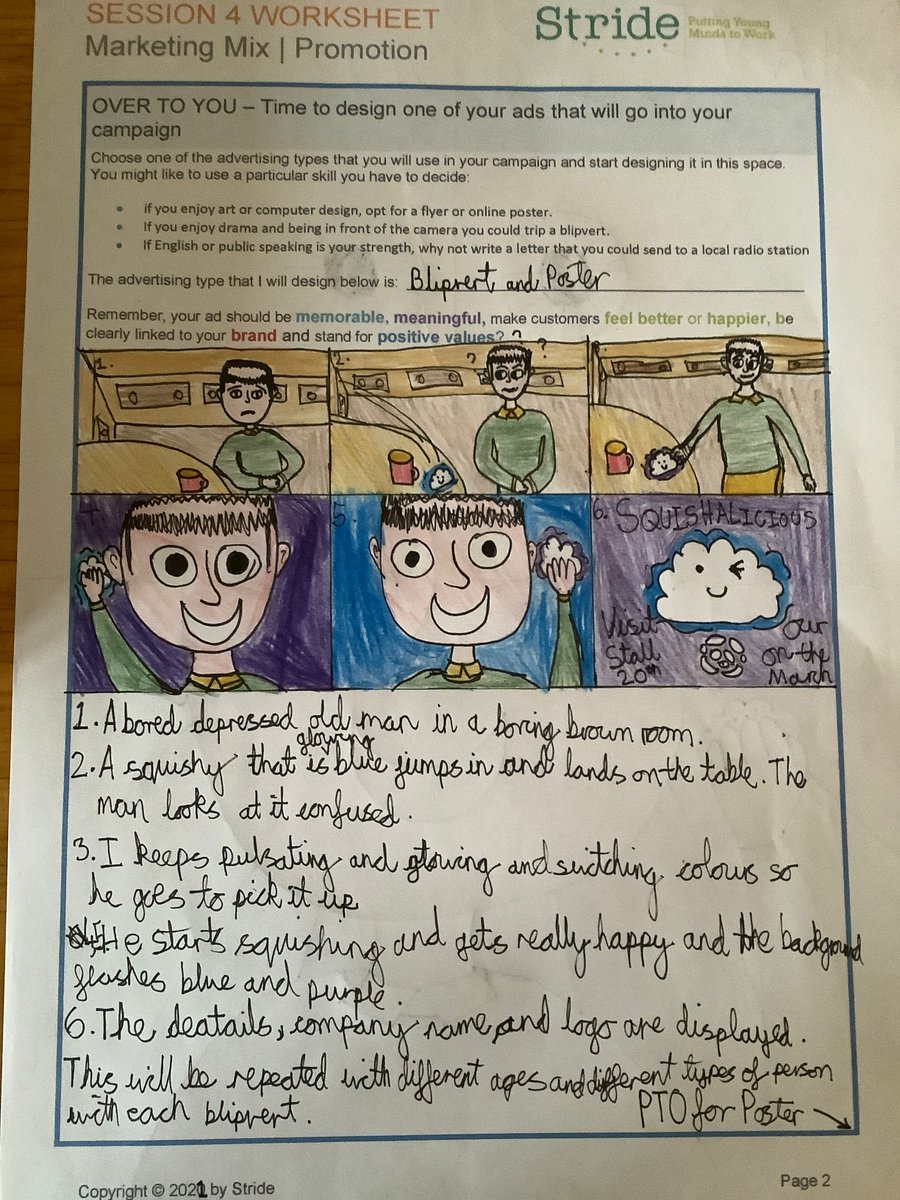 SESSION 4 WORKSHEET
Marketing Mix | Promotion
Stride
Putting Young
Minds to Work
OVER TO YOU – Time to design one of your ads that will go into your
campaign
Choose one of the advertising types that you will use in your campaign and start designing it in this space.
You might like to use a particular skill you have to decide:
• if you enjoy art or computer design, opt for a flyer or online poster.
• If you enjoy drama and being in front of the camera you could trip a blipvert.
• If English or public speaking is your strength, why not write a letter that you could send to a local radio station
The advertising type that I will design below is: Blipvert and Poster
Remember, your ad should be memorable, meaningful, make customers feel better or happier, be
clearly linked to your brand and stand for positive values?
1.
2. ? ?
3.
4.
5.
6. SQUISHALICIOUS
Visit Our
Stall on the
20th March
1. A bored depressed old man in a boring brown room.
2. A squishy that is glowing blue jumps in and lands on the table. The
man looks at it confused.
3. I keeps pulsating and glowing and switching colours so
he goes to pick it up
He starts squishing and gets really happy and the background
flashes blue and purple.
6. The deatails, company name, and logo are displayed.
This will be repeated with different ages and different types of person
with each blipvert.
PTO for Poster
Copyright © 2021 by Stride
Page 2